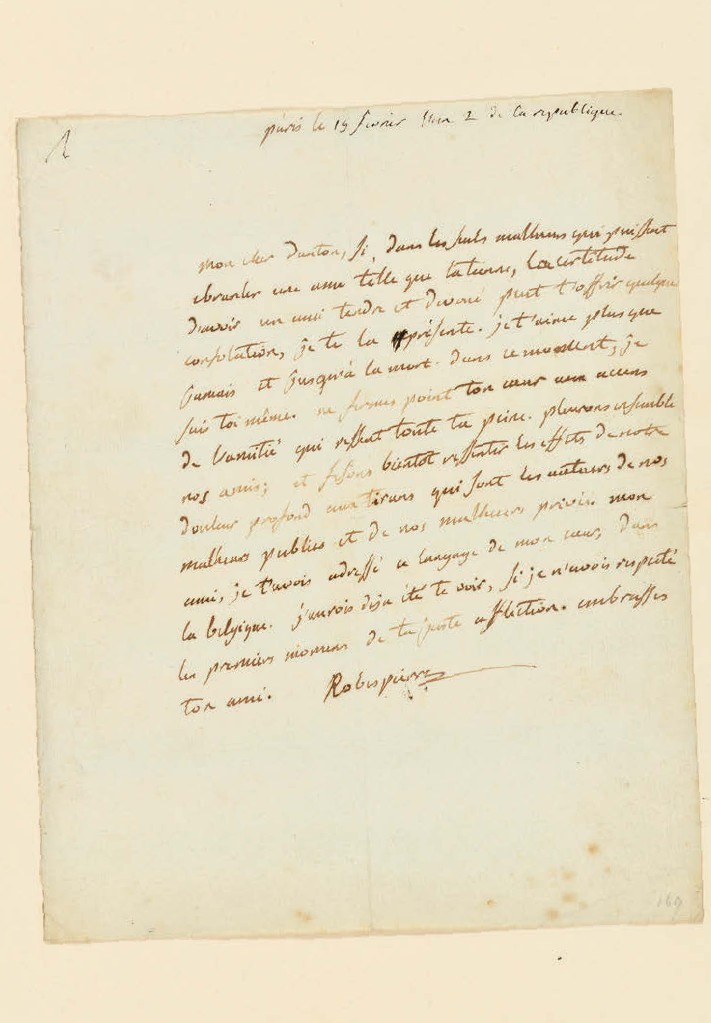 paris le 15 fevrier l'an 2 de la republique.
mon cher danton, si, dans les seuls malheurs qui puissent
ebranler une ame telle que la tienne, la certitude
d'avoir un ami tendre et devoué peut t'offrir quelque
consolation, je te la présente. je t'aime plus que
jamais et jusqu'à la mort. dans ce moment, je
suis toi même. ne fermes point ton cœur aux accens
de l'amitié qui ressent toute ta peine. pleurons ensemble
nos amis; et fesons bientot ressentir les effets de notre
douleur profond aux tirans qui sont les auteurs de nos
malheurs publics et de nos malheurs privés. mon
ami, je t'avois adressé ce langage de mon cœur, dans
la belgique. j'aurois déja été te voir, si je n'avois respecté
les premiers momens de ta juste affliction. embrasses
ton ami. Robespierre
169